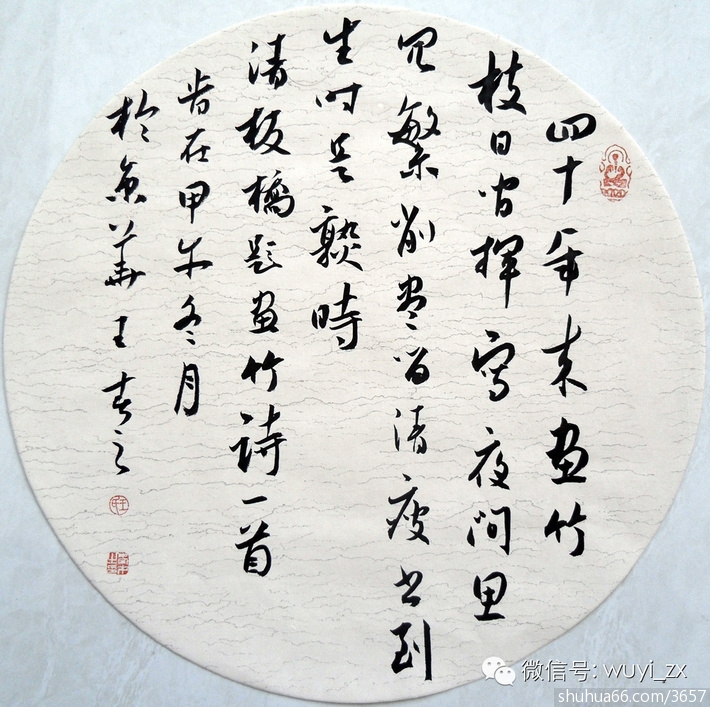 四十年来画竹
枝日间揮寫夜间思
冗繁削尽留清瘦画到
生时是熟時
清板橋题画竹詩一首
岁在甲午冬月
於京華王春之
微信号: wuyi_zx
shuhua66.com/3657